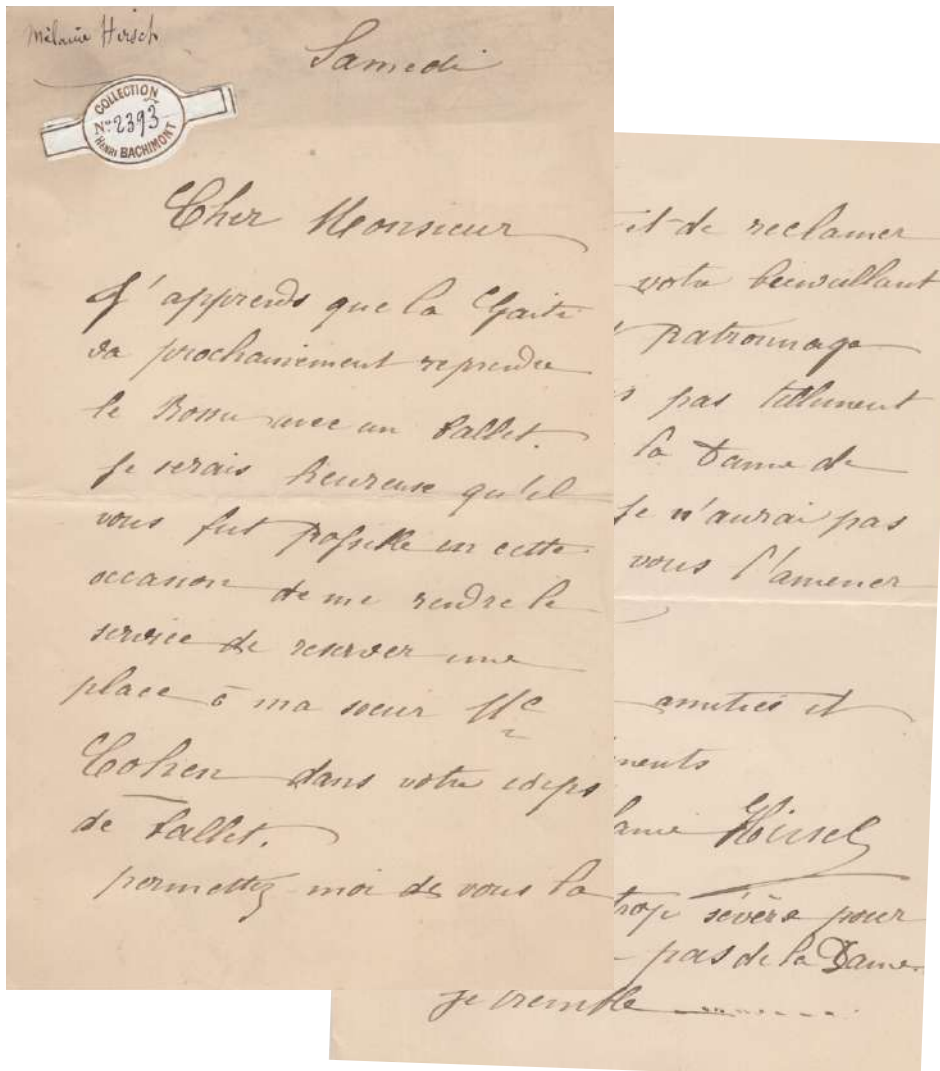 Mélanie Hirsch
Samedi
COLLECTION
No 2393
HENRI BACHIMONT
Cher Monsieur
J'apprends que la Gaité
va prochainement reprendre
le Bossu avec un ballet.
Je serais heureuse qu'il
vous fut possible en cette
occasion de me rendre le
service de reserver une
place à ma soeur Me
Cohen dans votre corps
de ballet.
permettez moi de vous la
et de reclamer
votre bienveillant
patronnage
pas tellement
la Dame de
je n'aurai pas
vous l'amener
amitiés et
Hirsch
trop sévère pour
pas de la Dame
je tremble ..........